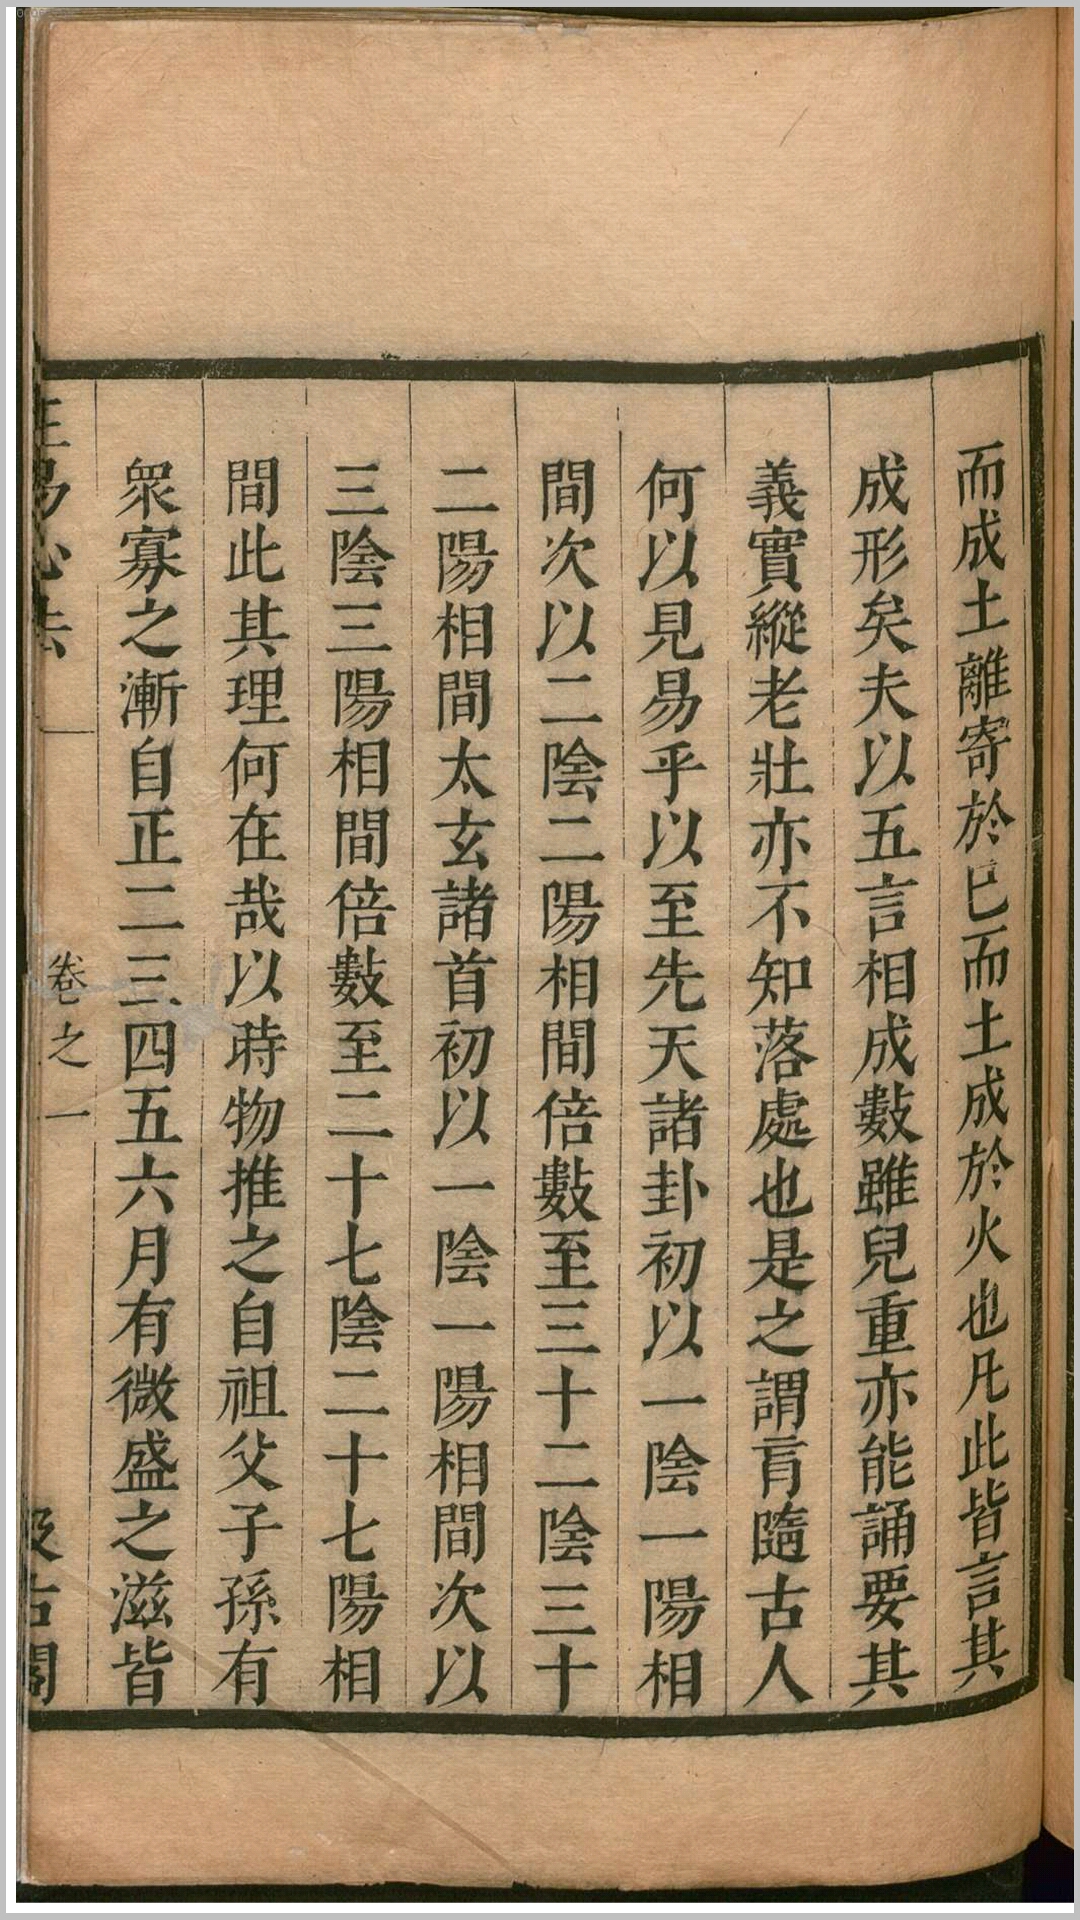 而成土離寄於巳而土成於火也凡此皆言其
成形矣夫以五言相成數雖兒重亦能誦要其
義實縱老壯亦不知落處也是之謂肓隨古人
何以見易乎以至先天諸卦初以一陰一陽相
間次以二陰二陽相間倍數至三十二陰三十
二陽相間太玄諸首初以一陰一陽相間次以
三陰三陽相間倍數至二十七陰二十七陽相
間此其理何在哉以時物推之自祖父子孫有
眾寡之漸自正二三四五六月有微盛之滋皆
卷之一